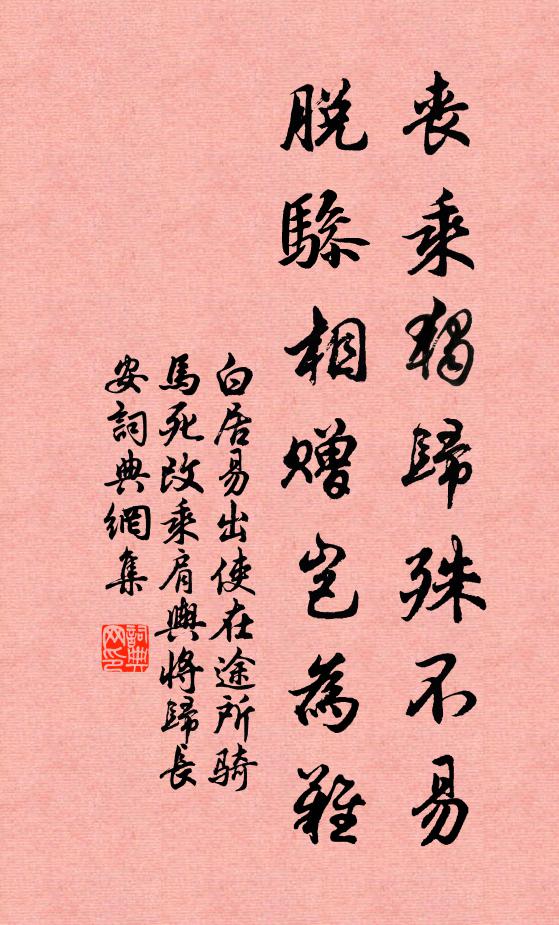 喪乘獨歸殊不易
脫驂相贈豈為難
白居易出使在途所骑
馬死改乘肩輿將歸長
安詞典網集
詞典网印